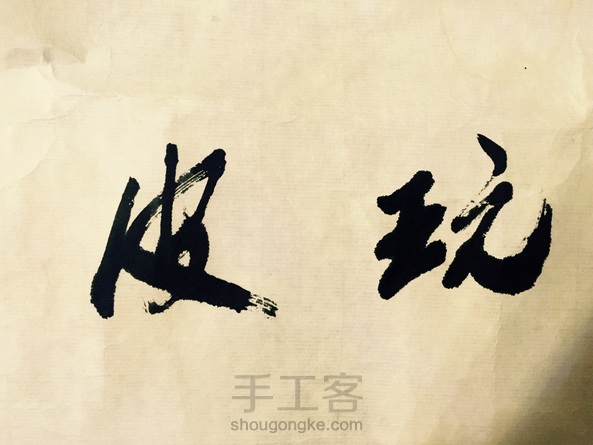 皮 玩
手工客
shougongke.com